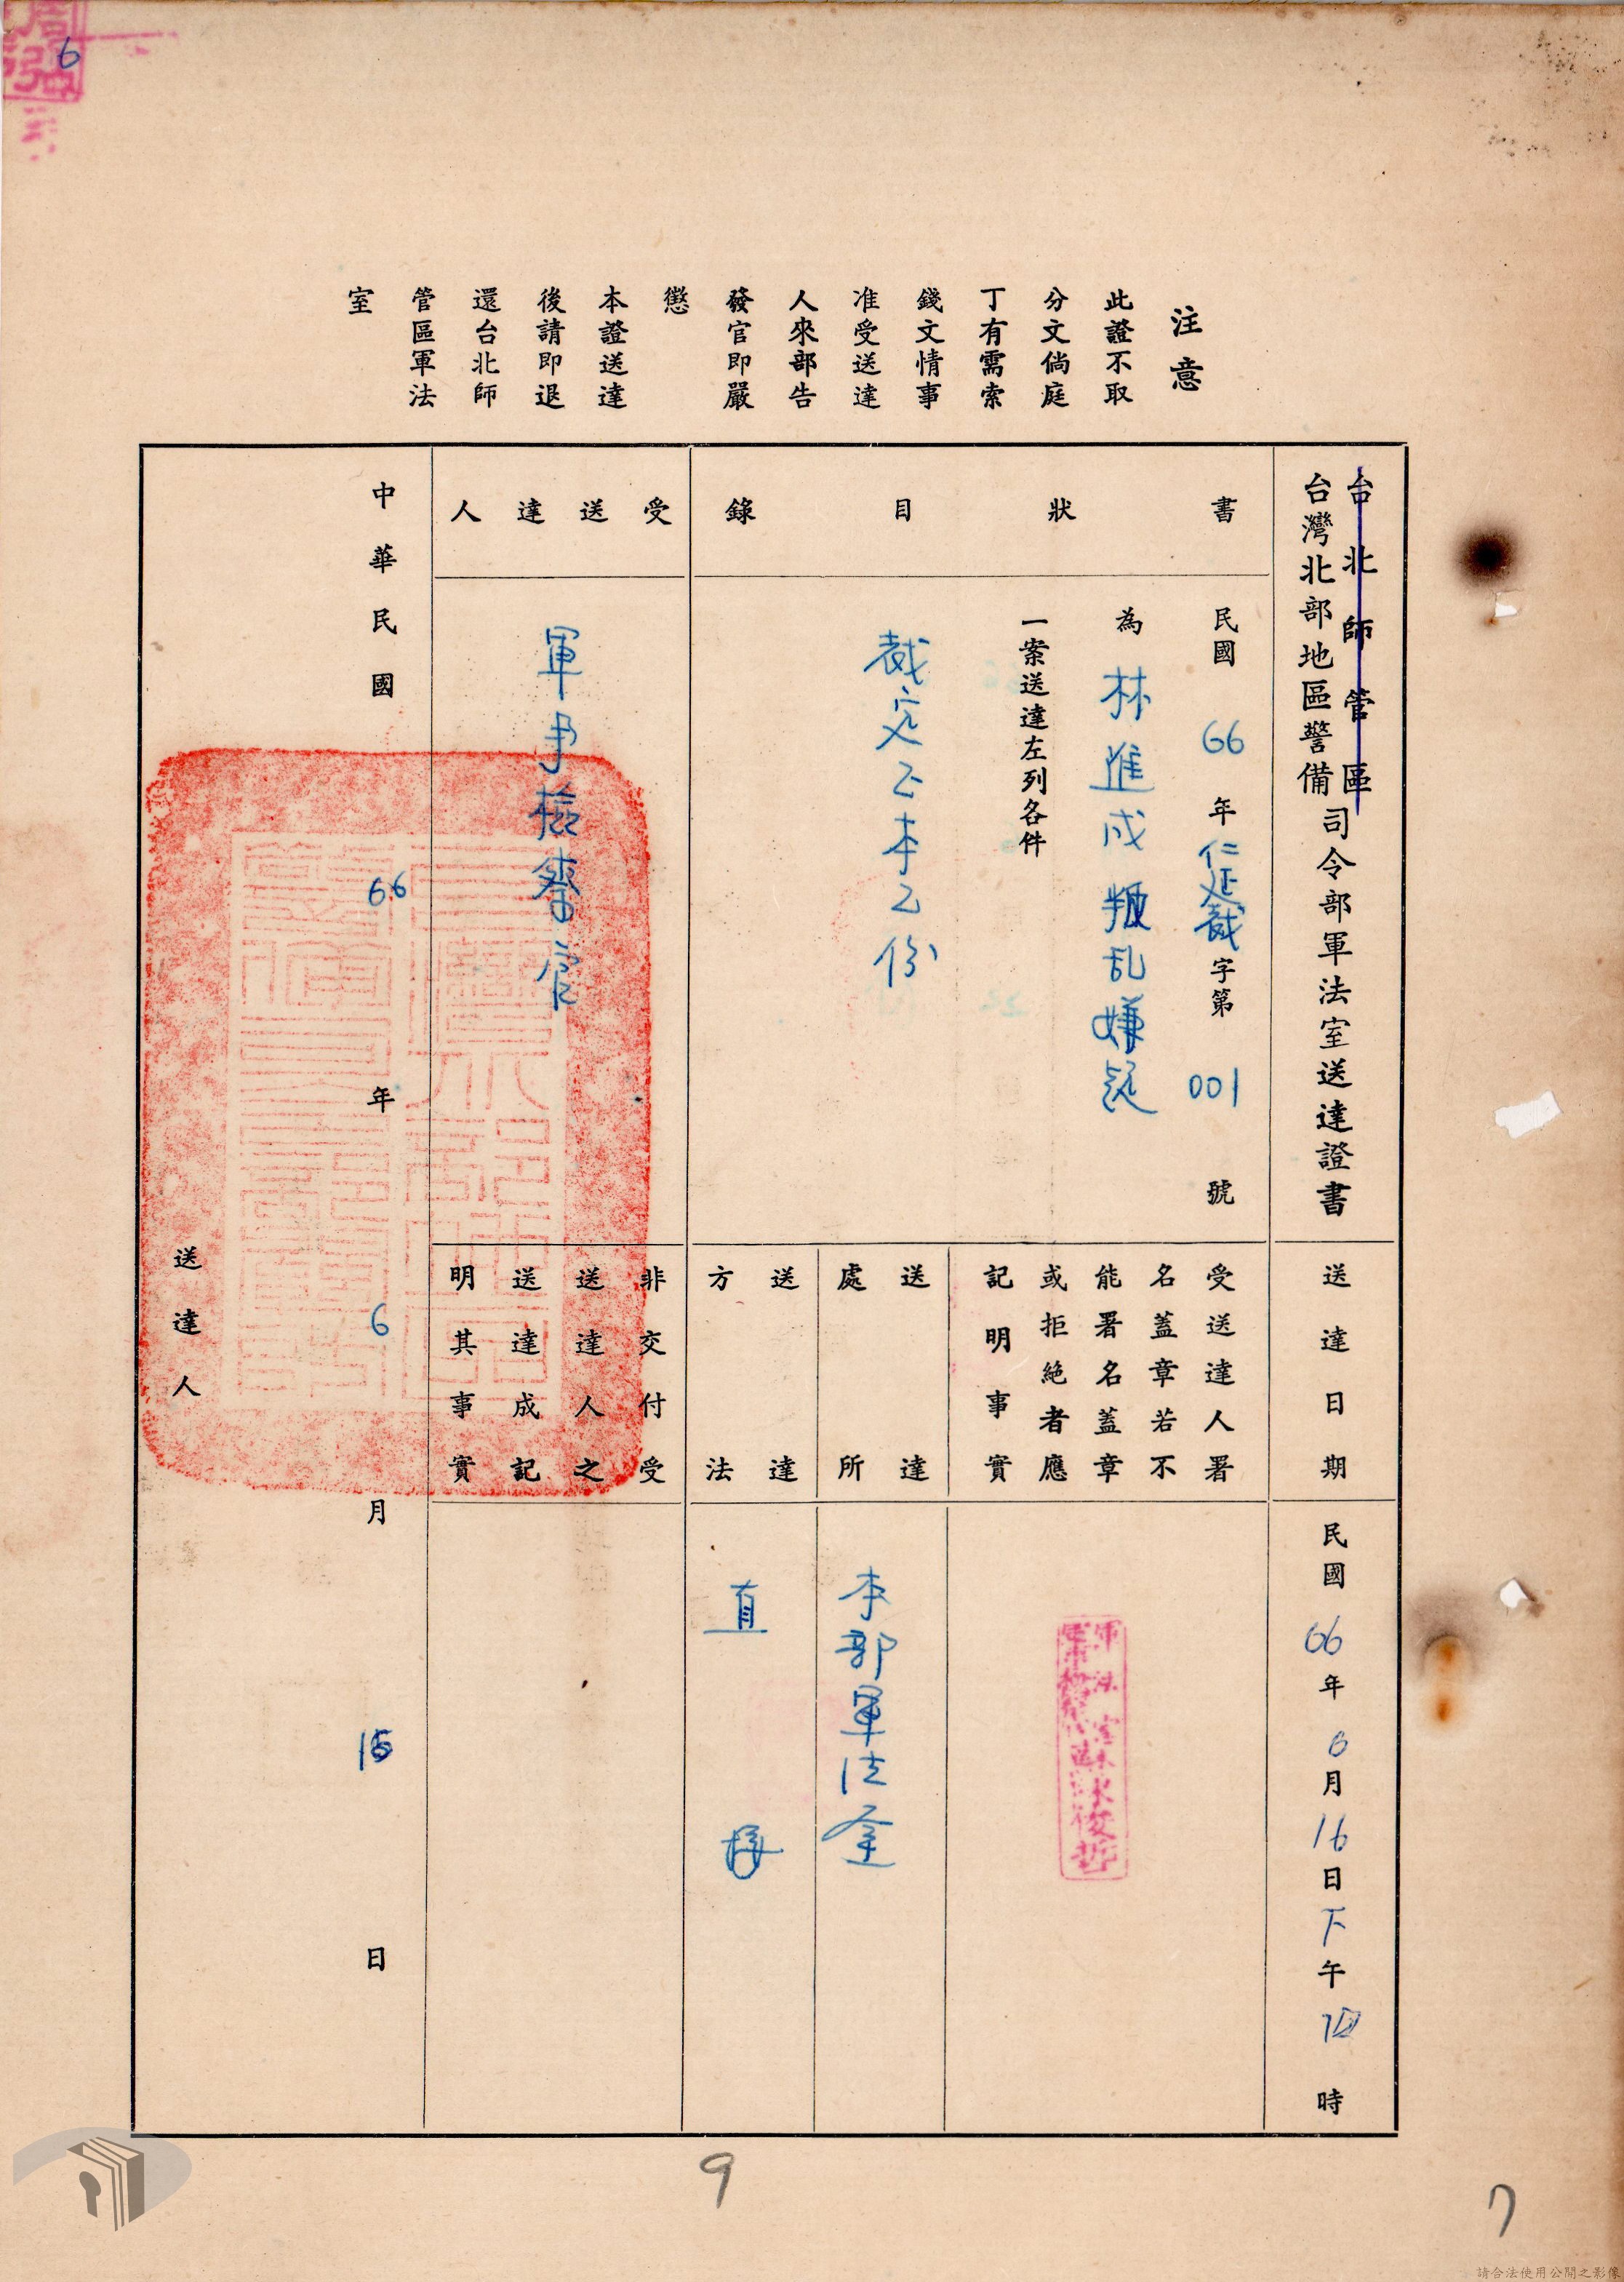 注意
此證不取
分文倘庭
丁有需索
錢文情事
准受送達
人來部告
發官即嚴
懲
本證送達
後請即退
還台北師
管區軍法
室
台北師管區
台灣北部地區警備
司令部軍法室送達證書
送達日期
民國66年6月16日下午
時
書狀目錄
民國66年
裁字第001號
為林進成叛乱嫌疑
一案送達左列各件
裁定正本乙份
受送達人署
名蓋章若不
能署名蓋章
或拒絕者應
記明事實
軍法室
俊哲
送達
處所
本部軍法室
送達
方法
直接
受送達人
軍事檢察官
非交付受
送達人之
送達成記
明其事實
中華民國66年6月15日
送達人
6
9
7
請合法使用公開之影像